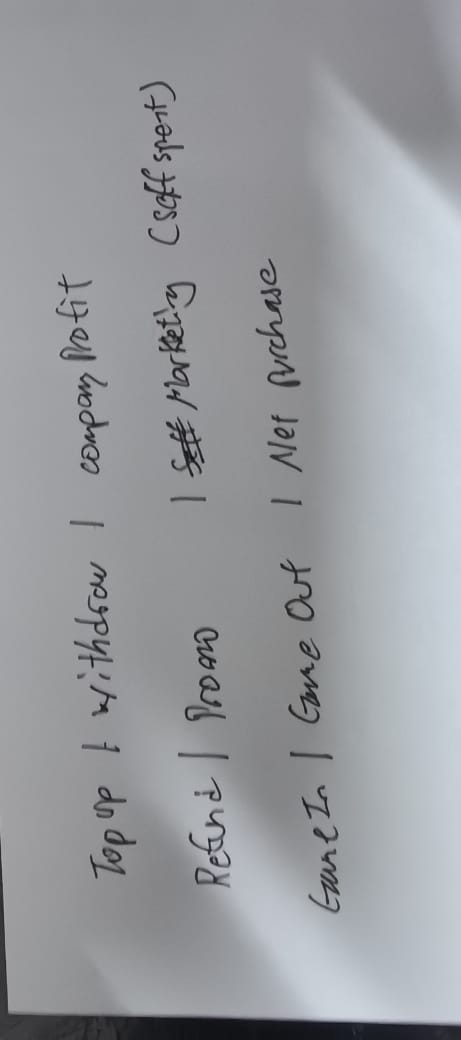 Top up | withdraw | company Profit
Refund | Promo | Marketing (Saff spent)
Game In | Game Out | Net purchase